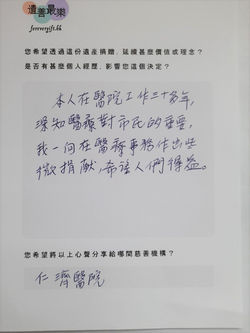 遺善最樂
forevergift.hk
您希望透過這份遺產捐贈，延續甚麼價值或理念？
是否有甚麼個人經歷，影響您這個決定？
本人在醫院工作三十多年，
深知醫療對市民的重要，
我一向在醫療事務作出些
微捐獻，希讓人們得益。
您希望將以上心聲分享給哪間慈善機構？
仁濟醫院